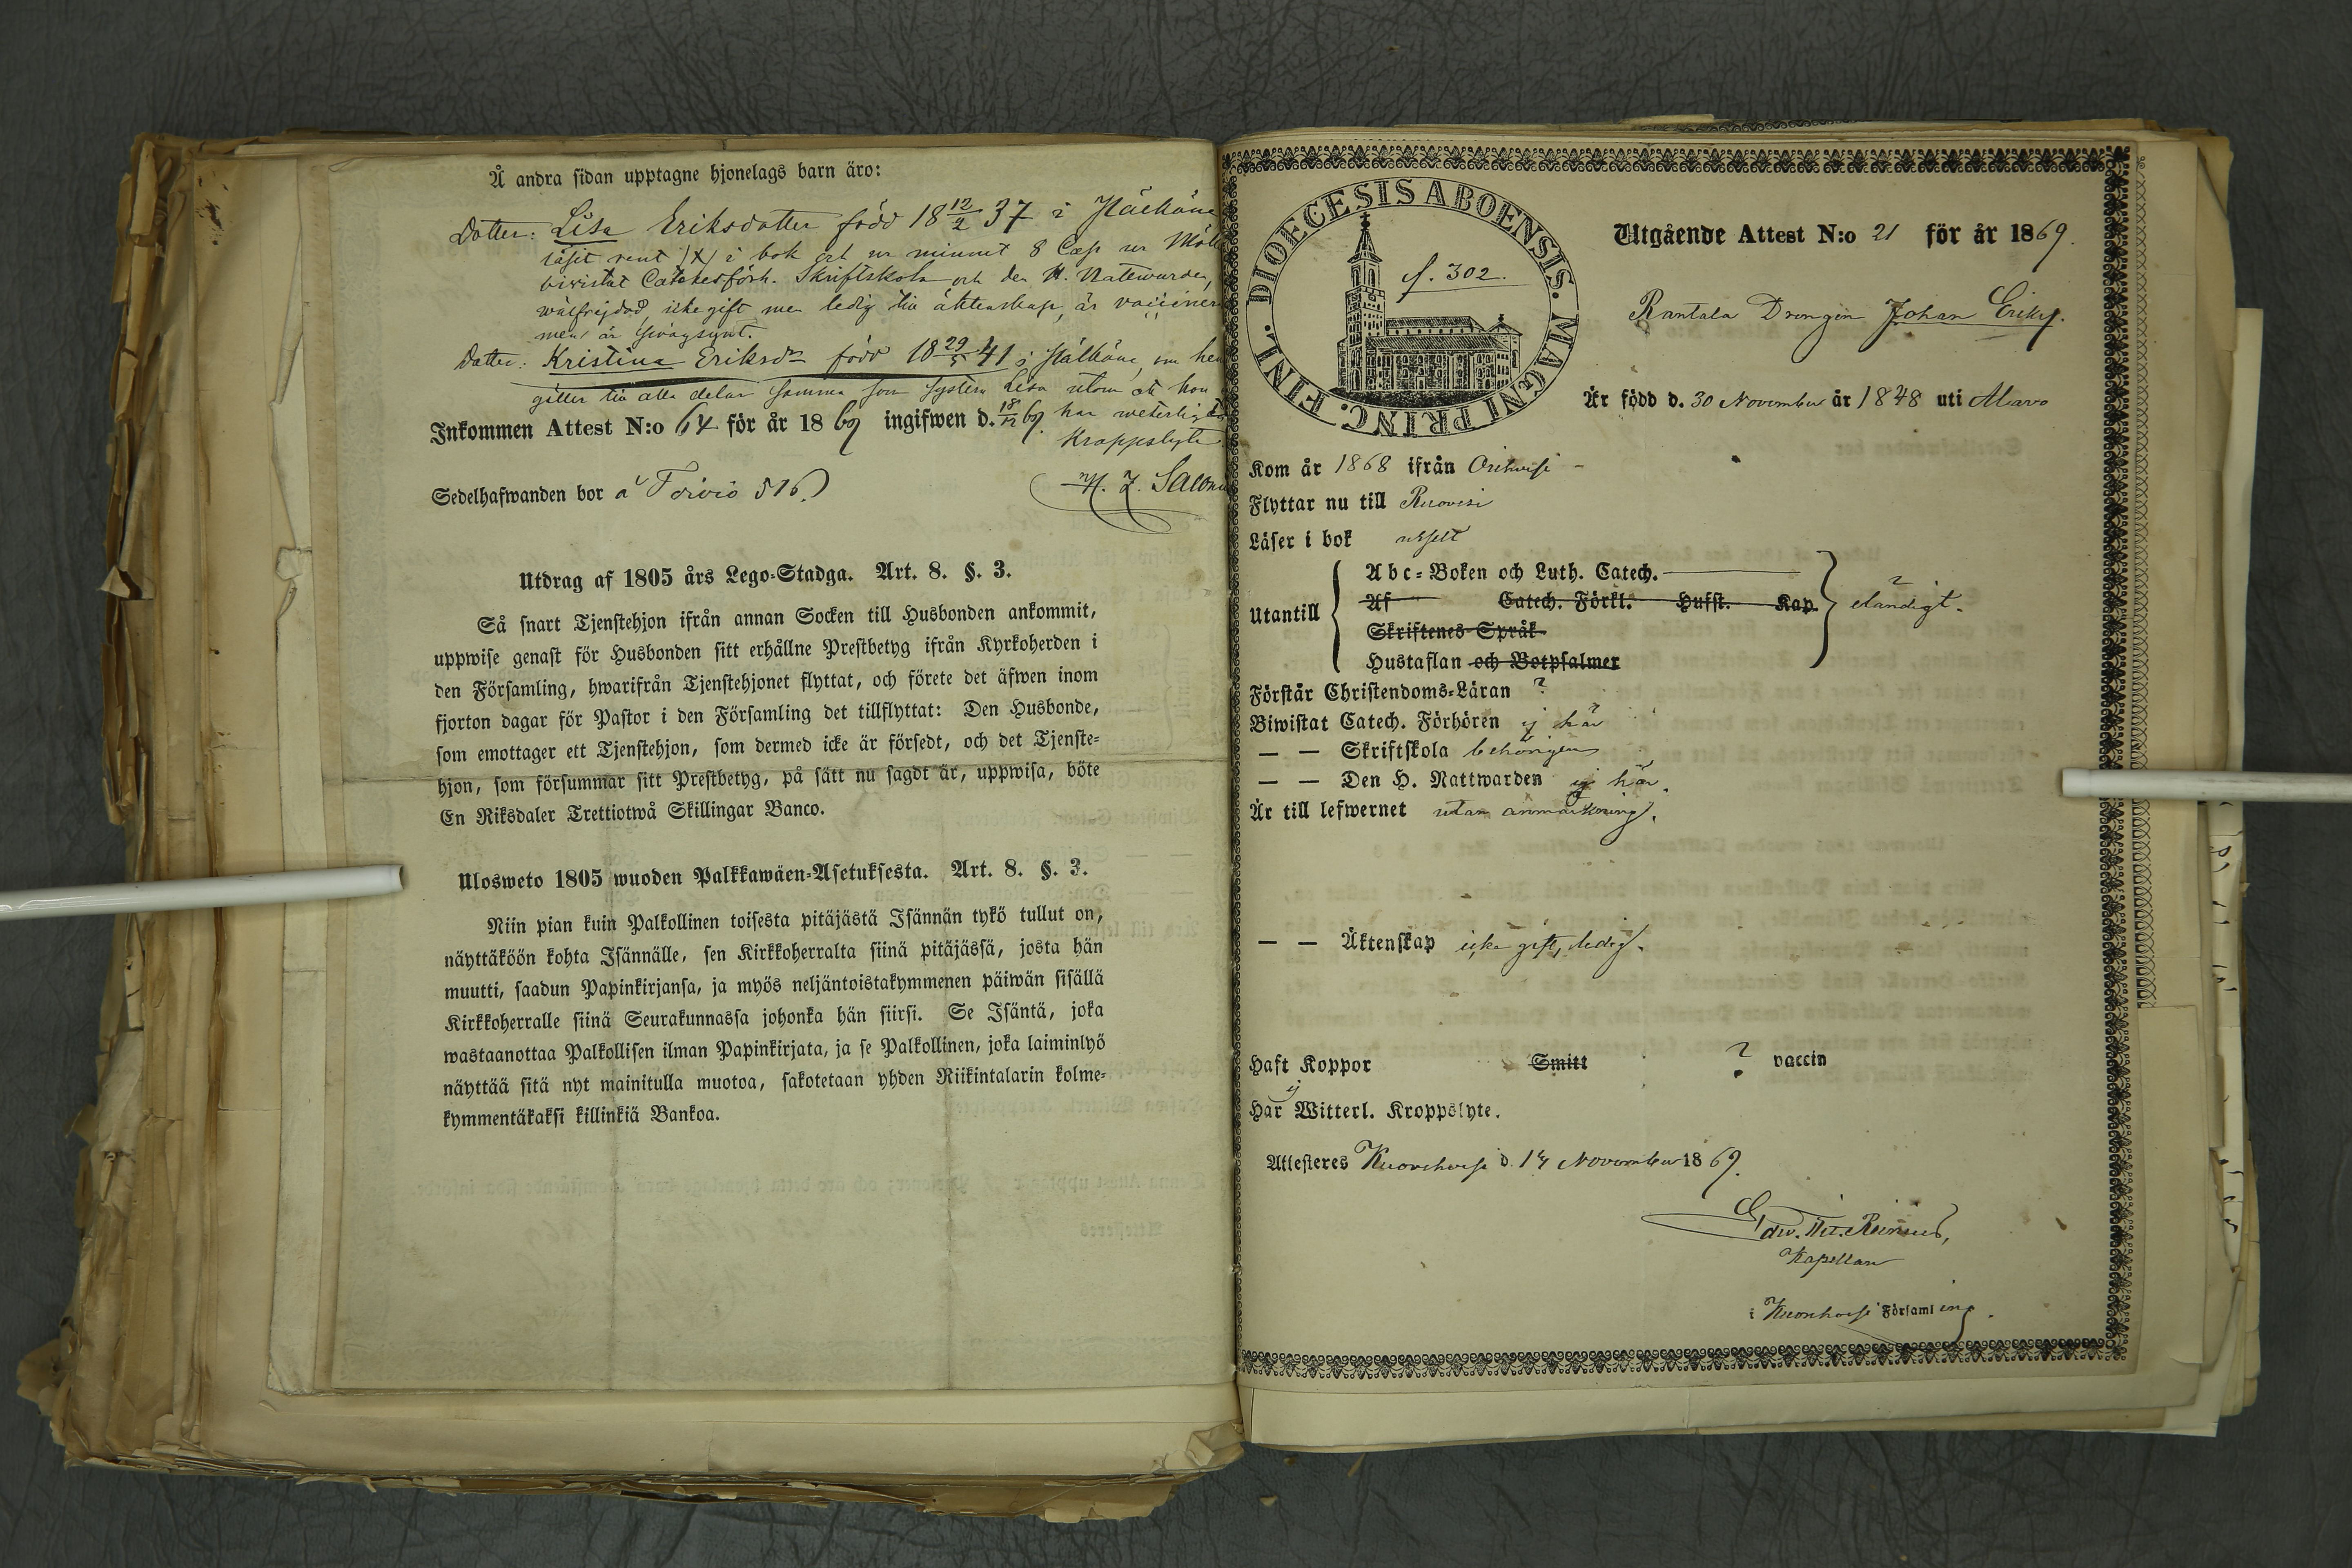 Å andra sidan upptagne hjonelags barn äro:
Dotter: Lisa Eriksdotter född 18 12/2 37 i
läsit rent i bok och ur minnet 8 Cap ur
bivistat Catekesförh. Skriftskola och den H. Nattwarden,
wälfrejdad, icke gift men ledig till äktenskap, är
men är swagsynt.
Dotter: Kristina Eriksdr född 18 29/5 41 i
gäller till alla delar samma som systern Lisa utom att hon
Inkommen Attest N:o 64 för år 18 69 ingifwen d. 18/12 69.
har weterligt
Kroppslyte
Sedelhafwanden bor å Torvio 516.)
Utdrag af 1805 års Lego-Stadga. Art. 8. §. 3.
Så snart Tjenstehjon ifrån annan Socken till Husbonden ankommit,
uppwise genast för Husbonden sitt erhållne Prestbetyg ifrån Kyrkoherden i
den Församling, hwarifrån Tjenstehjonet flyttat, och förete det äfwen inom
fjorton dagar för Pastor i den Församling det tillflyttat: Den Husbonde,
som emottager ett Tjenstehjon, som dermed icke är försedt, och det Tjenste-
hjon, som försummar sitt Prestbetyg, på sätt nu sagdt är, uppwisa, böte
En Riksdaler Trettiotwå Skillingar Banco.
Ulosweto 1805 wuoden Palkkawäen-Asetuksesta. Art. 8. §. 3.
Niin pian kuin Palkollinen toisesta pitäjästä Isännän tykö tullut on,
näyttäköön kohta Isännälle, sen Kirkkoherralta siinä pitäjässä, josta hän
muutti, saadun Papinkirjansa, ja myös neljäntoistakymmenen päiwän sisällä
Kirkkoherralle siinä Seurakunnassa johonka hän siirsi. Se Isäntä, joka
wastaanottaa Palkollisen ilman Papinkirjata, ja se Palkollinen, joka laiminlyö
näyttää sitä nyt mainitulla muotoa, sakotetaan yhden Riikintalarin kolme-
kymmentäkaksi killinkiä Bankoa.
DIOECESIS ABOENSIS. MAGNI PRINC. FINL.
f. 302.
Utgående Attest N:o 21 för år 1869.
Rantala Drengen Johan Eriks.
Är född d. 30 November år 1848 uti Alavo
Kom år 1868 ifrån Orihvesi
Flyttar nu till Ruovesi
Läser i bok uselt
Utantill
Abc-Boken och Luth. Catech.
Af Catech. Förkl. Hufst. Kap.
Skriftenes Språk
Hustaflan och Botpsalmer
eländigt.
Förstår Christendoms-Läran ?
Biwistat Catech. Förhören ej här
— — Skriftskola behörigen
— — Den H. Nattwarden ej här.
Är till lefwernet utan anmärkning.
— — Äktenskap icke gift, ledig.
Haft Koppor Smitt ? vaccin
Har ej Witterl. Kroppslyte.
Attesteres Kuorehvesi d. 14 November 1869.
Kapellan
i Kuorehvesi Församling.